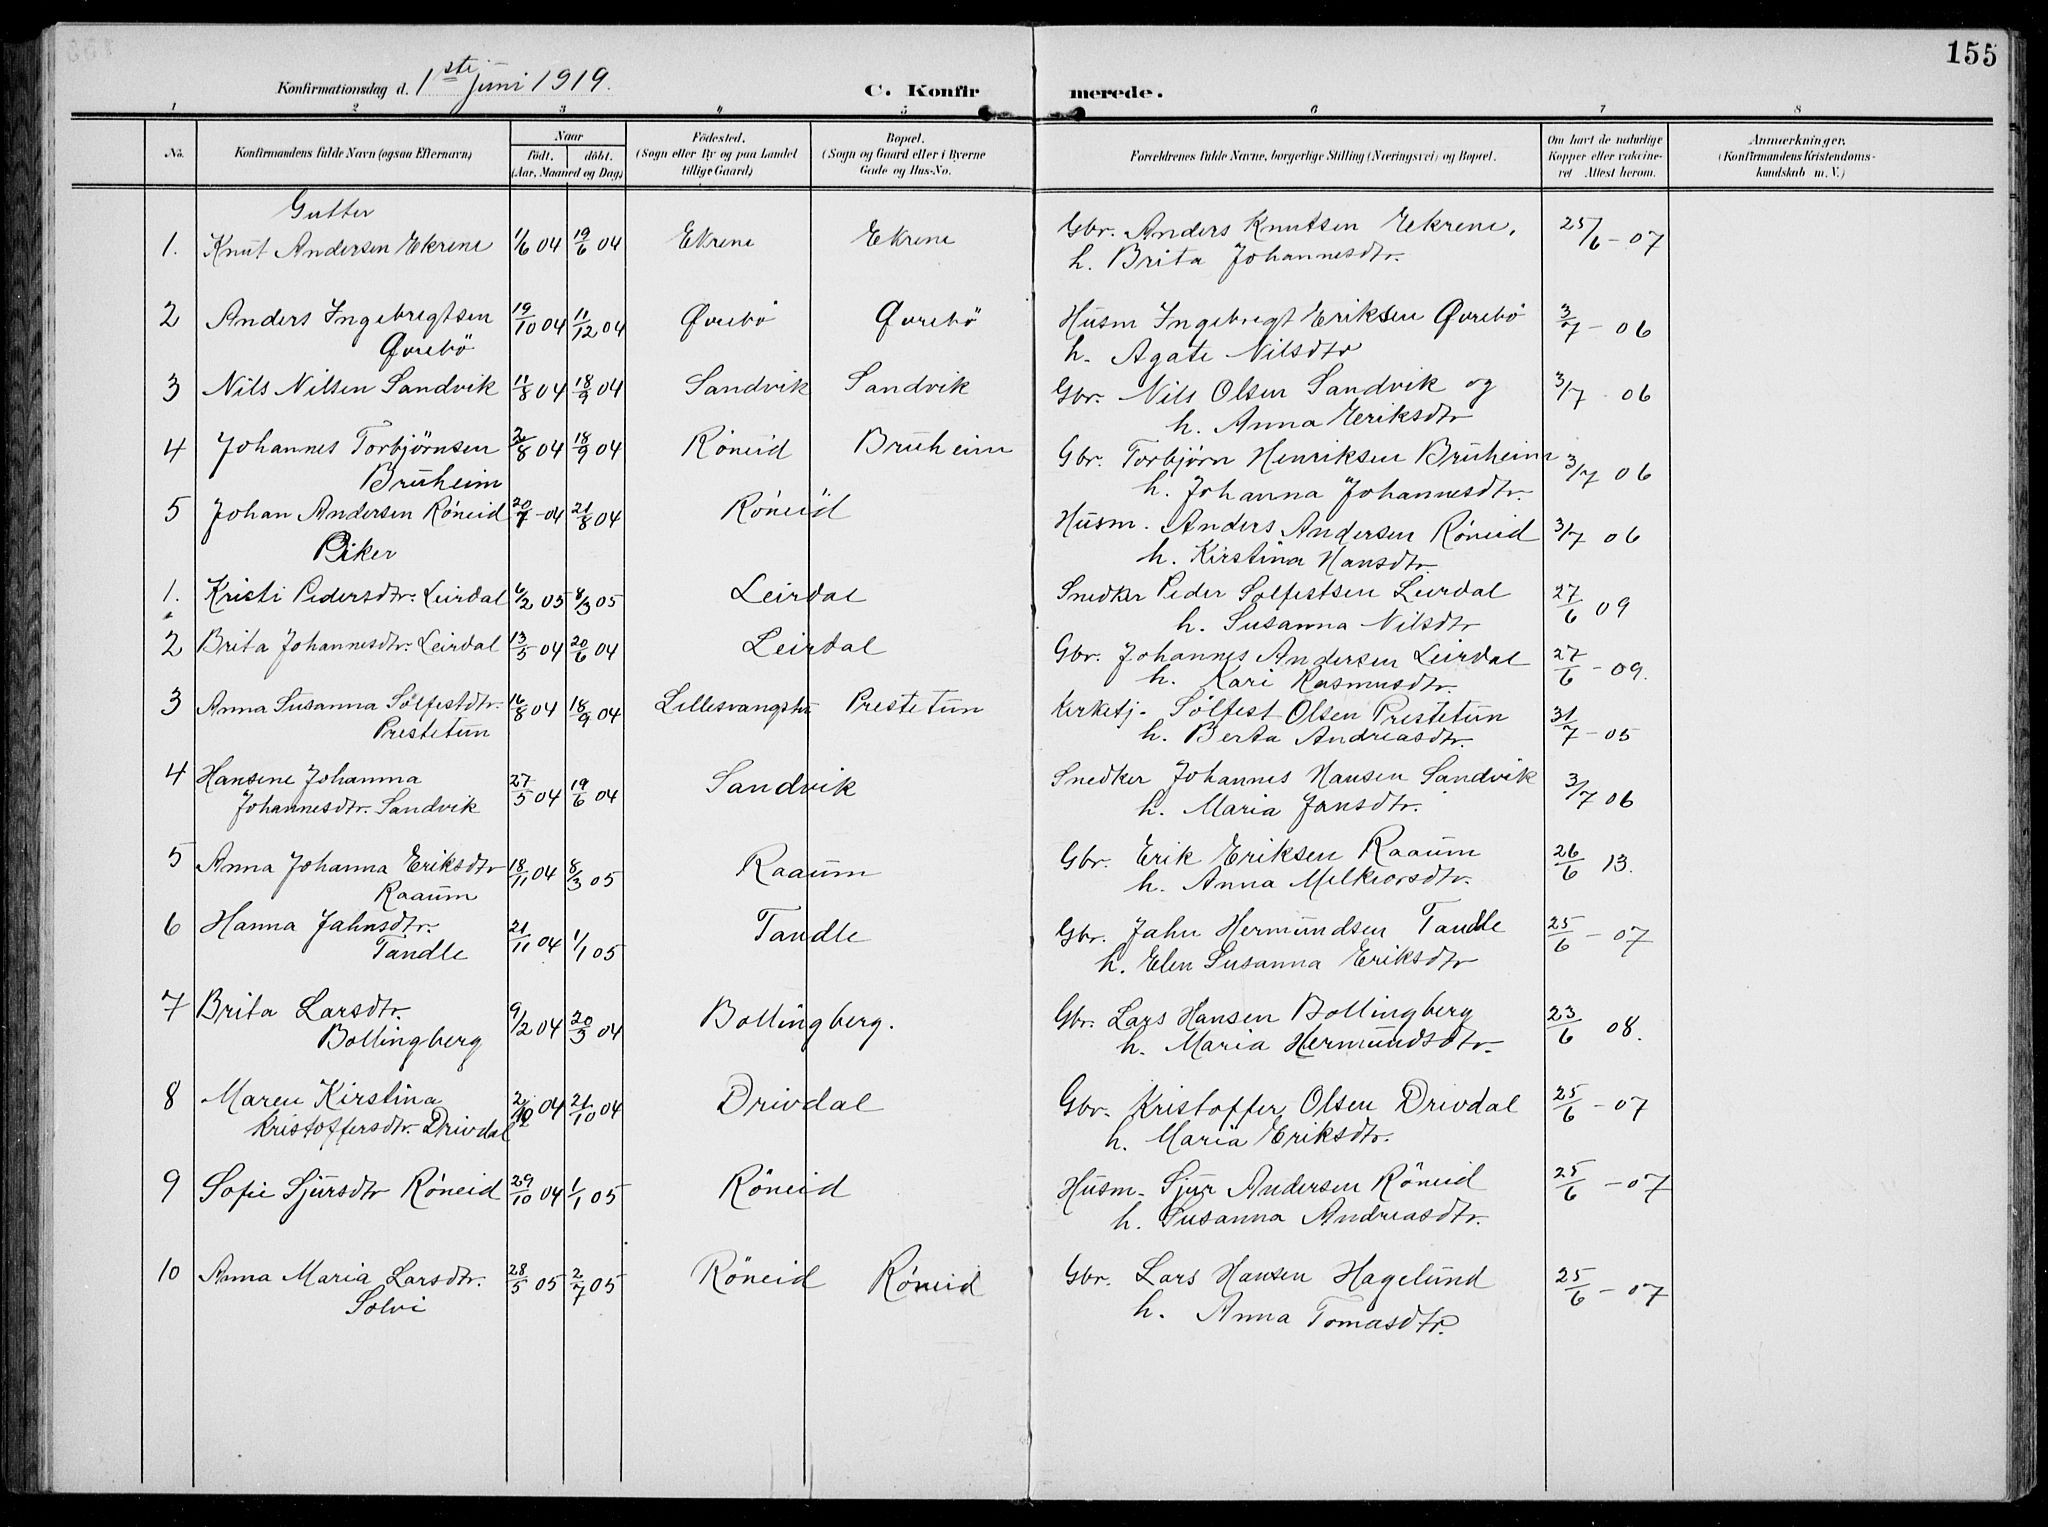 155
Konfirmationsdag d. 1ste juni 1919.
C. Konfirmerede.
1 2 3 4 5 6 7 8
No. Konfirmandens fulde Navn (ogsaa Efternavn) Naar födt. döbt. (Aar, Maaned og Dag) Födested. (Sogn eller By og paa Landet tillige Gaard) Bopæl. (Sogn og Gaard eller i Byerne Gade og Hus-No. Forældrenes fulde Navne, borgerlige Stilling (Næringsvei) og Bopæl. Om havt de naturlige Kopper eller vakcineret Attest herom. Anmerkninger. (Konfirmandens Kristendomskundskab m.V.)
Gutter
1. Knut Andersen Ekrene 11/6 04 19/6 04 Ekrene Ekrene Gbr. Anders Knutsen Eekrene, 25/6 - 07
h. Brita Johannesdtr.
2 Anders Ingebregtsen 19/10 04 11/12 04 Øvrebö Øvrebö Husm Ingebregt Eriksen Øvrebö 3/7 - 06
Øvrebö h. Agate Nilsdtr
3 Nils Nilsen Sandvik 11/8 04 18/9 04 Sandvik Sandvik Gbr. Nils Olsen Sandvik og 3/7 - 06
h. Anna Eeriksdtr
4 Johannes Torbjørnsen 2/8 04 18/9 04 Röneid Bruheim Gbr. Torbjörn Henriksen Bruheim 3/7 06
Bruheim h. Johanna Johannesdtr.
5 Johan Andersen Röneid 20/7 - 04 21/8 04 Röneid Husm. Anders Andersen Röneid 3/7 06
h. Kirstina Hansdtr.
Piker
1. Kristi Pedersdtr. Leirdal 6/2 05 8/3 05 Leirdal Snedker Peder Solfestsen Leirdal 27/6 09
h. Susanna Nilsdtr
2 Brita Johannesdtr. Leirdal 13/5 04 20/6 04 Leirdal Gbr. Johannes Andersen Leirdal 27/6 - 09.
h. Kari Rasmusdtr.
3 Anna Susanna Sölfestdtr. 16/8 04 18/9 04 Lillesvangstu Prestetun Kirketj. Sölfest Olsen Prestetun 31/7 - 05
Prestetun h. Berta Andreasdtr.
4 Hansine Johanna 27/5 04 19/6 04 Sandvik Snedker Johannes Hansen Sandvik 3/7 06
Johannesdtr. Sandvik h. Maria Jansdtr.
5 Anna Johanna Eriksdtr 18/11 04 8/3 05 Raaum Gbr. Erik Eriksen Raaum 26/6 13.
Raaum h. Anna Melkiorsdtr.
6 Hanna Jahnsdtr. 21/11 04 1/1 05 Tandle Gbr. Jahn Hermundsen Tandle 25/6 - 07
Tandle h. Elen Susanna Eriksdtr
7 Brita Larsdtr. 9/2 04 20/3 04 Bollingberg. Gbr. Lars Hansen Bollingberg 23/6 08.
Bollingberg h. Maria Hermundsdtr.
8 Maren Kirstina 04 21/10 04 Drivdal Gbr. Kristoffer Olsen Drivdal 25/6 - 07
Kristoffersdtr. Drivdal h. Maria Eriksdtr.
9 Sofie Sjursdtr Röneid 29/10 04 1/1 05 Röneid Husm. Sjur Andersen Röneid 25/6 - 07
h. Susanna Andreasdtr.
10 Anna Maria Larsdtr. 28/5 05 2/7 05 Röneid Röneid Gbr. Lars Hansen Hagelund 25/6 - 07
Solvi h. Anna Tomasdtr.